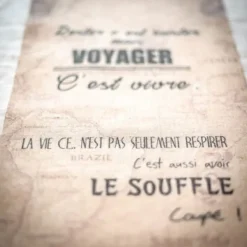 VOYAGER
C'est vivre.
LA VIE CE.. N'EST PAS SEULEMENT RESPIRER
BRAZIL
C'est aussi avoir
LE SOUFFLE
Coupé !